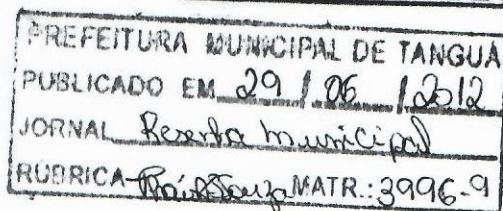 PREFEITURA MUNICIPAL DE TANGUA
PUBLICADO EM 29 / 06 / 2012
JORNAL Resenha Municipal
RUBRICA MATR.: 3996-9